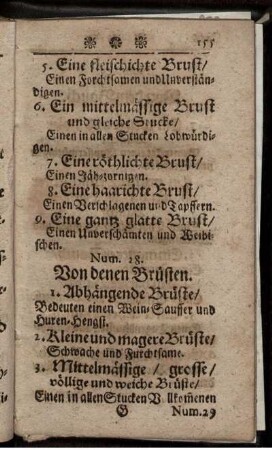 155
5. Eine fleischichte Brust/
Einen Forchtsamen und Unverstän-
digen.
6. Ein mittelmässige Brust
und gleiche Stucke/
Einen in allen Stucken Lobwürdi-
gen.
7. Eine röthlichte Brust/
Einen Jäh-zornigen.
8. Eine haarichte Brust/
Einen Verschlagenen und Tapffern.
9. Eine gantz glatte Brust/
Einen Unverschämten und Weibi-
schen.
Num. 28.
Von denen Brüsten.
1. Abhängende Brüste/
Bedeuten einen Wein-Sauffer und
Huren-Hengst.
2. Kleine und magere Brüste/
Schwache und Furchtsame.
3. Mittelmässige / grosse/
völlige und weiche Brüste/
Einen in allen Stucken Vollkom̃enen
G Num.29